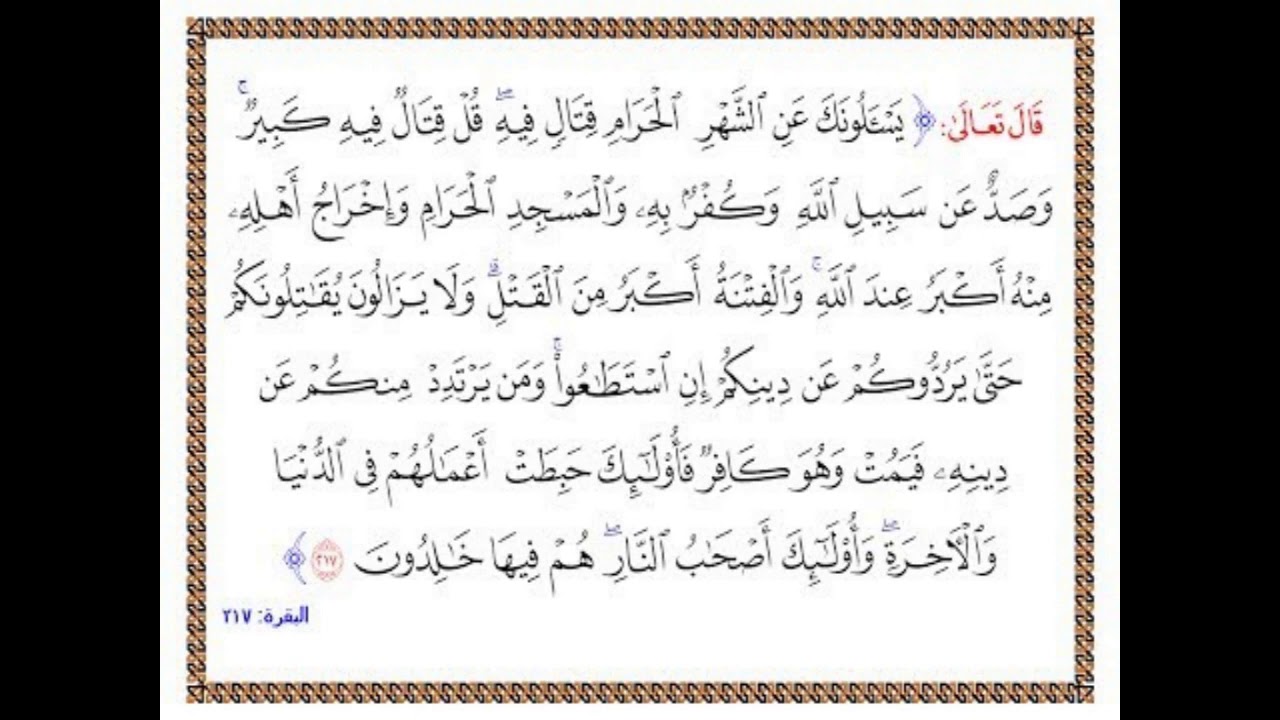 قَالَ تَعَالَىٰ: ﴿ يَسْـَٔلُونَكَ عَنِ ٱلشَّهْرِ ٱلْحَرَامِ قِتَالٍ فِيهِۖ قُلْ قِتَالٌ فِيهِ كَبِيرٌۚ
وَصَدٌّ عَن سَبِيلِ ٱللَّهِ وَكُفْرٌۢ بِهِۦ وَٱلْمَسْجِدِ ٱلْحَرَامِ وَإِخْرَاجُ أَهْلِهِۦ
مِنْهُ أَكْبَرُ عِندَ ٱللَّهِۚ وَٱلْفِتْنَةُ أَكْبَرُ مِنَ ٱلْقَتْلِۗ وَلَا يَزَالُونَ يُقَٰتِلُونَكُمْ
حَتَّىٰ يَرُدُّوكُمْ عَن دِينِكُمْ إِنِ ٱسْتَطَٰعُوا۟ۚ وَمَن يَرْتَدِدْ مِنكُمْ عَن
دِينِهِۦ فَيَمُتْ وَهُوَ كَافِرٌ فَأُو۟لَٰٓئِكَ حَبِطَتْ أَعْمَٰلُهُمْ فِى ٱلدُّنْيَا
وَٱلْـَٔاخِرَةِۖ وَأُو۟لَٰٓئِكَ أَصْحَٰبُ ٱلنَّارِۖ هُمْ فِيهَا خَٰلِدُونَ ٢١٧ ﴾
البقرة: ٢١٧